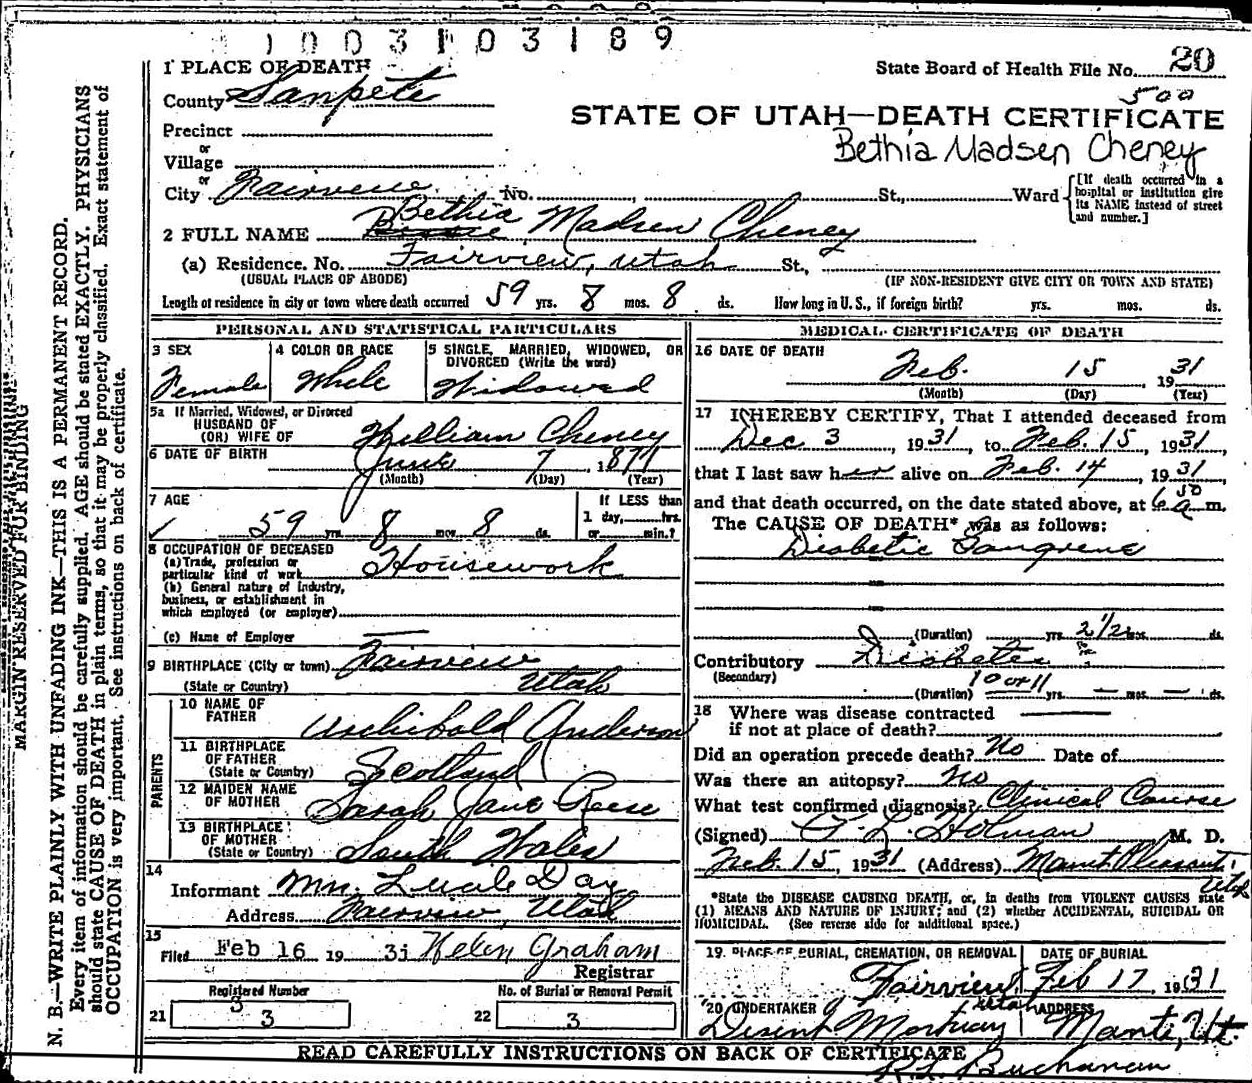 1003103189
State Board of Health File No. 20
500
1 PLACE OF DEATH
County Sanpete
STATE OF UTAH—DEATH CERTIFICATE
Bethia Madsen Cheney
Precinct
or
Village
or
City Fairview No. St., Ward [If death occurred in a hospital or institution give its NAME instead of street and number.]
2 FULL NAME Bethia Madsen Cheney
(a) Residence. No. Fairview, Utah St.,
(USUAL PLACE OF ABODE) (IF NON-RESIDENT GIVE CITY OR TOWN AND STATE)
Length of residence in city or town where death occurred 59 yrs. 8 mos. 8 ds. How long in U. S., if foreign birth? yrs. mos. ds.
PERSONAL AND STATISTICAL PARTICULARS
3 SEX
Female
4 COLOR OR RACE
White
5 SINGLE, MARRIED, WIDOWED, OR
DIVORCED (Write the word)
Widowed
5a If Married, Widowed, or Divorced
HUSBAND OF
(OR) WIFE OF William Cheney
6 DATE OF BIRTH June 7, 1871
(Month) (Day) (Year)
7 AGE
59 yrs. 8 mos. 8 ds.
If LESS than
1 day, hrs.
or min.?
8 OCCUPATION OF DECEASED
(a) Trade, profession or
particular kind of work Housework
(b) General nature of industry,
business, or establishment in
which employed (or employer)
(c) Name of Employer
9 BIRTHPLACE (City or town) Fairview
(State or Country) Utah
PARENTS
10 NAME OF
FATHER Archibald Anderson
11 BIRTHPLACE
OF FATHER
(State or Country) Scotland
12 MAIDEN NAME
OF MOTHER Sarah Jane Reese
13 BIRTHPLACE
OF MOTHER
(State or Country) South Wales
14
Informant Mrs. Lucile Day
Address Fairview, Utah
15
Filed Feb 16 1931 Helen Graham
Registrar
Registered Number
3
21 3
No. of Burial or Removal Permit
22 3
MEDICAL CERTIFICATE OF DEATH
16 DATE OF DEATH
Feb. 15, 1931
(Month) (Day) (Year)
17 I HEREBY CERTIFY, That I attended deceased from
Dec 3, 1931, to Feb. 15, 1931,
that I last saw her alive on Feb. 14, 1931,
and that death occurred, on the date stated above, at 6 50 a m.
The CAUSE OF DEATH* was as follows:
Diabetic Gangrene
(Duration) yrs. 2 1/2 mos. ds.
Contributory Diabetes
(Secondary) 10 or 11
(Duration) yrs. — mos. — ds.
18 Where was disease contracted
if not at place of death?
Did an operation precede death? No Date of
Was there an autopsy? No
What test confirmed diagnosis? Clinical Course
(Signed) Holman M. D.
Feb. 15, 1931 (Address) Mount Pleasant,
Utah
*State the DISEASE CAUSING DEATH, or, in deaths from VIOLENT CAUSES state
(1) MEANS AND NATURE OF INJURY; and (2) whether ACCIDENTAL, SUICIDAL OR
HOMICIDAL. (See reverse side for additional space.)
19. PLACE OF BURIAL, CREMATION, OR REMOVAL
Fairview
Utah
DATE OF BURIAL
Feb 17 1931
20 UNDERTAKER
Mortuary
ADDRESS
Manti, Ut.
READ CAREFULLY INSTRUCTIONS ON BACK OF CERTIFICATE
Buchanan
MARGIN RESERVED FOR BINDING
N. B.—WRITE PLAINLY WITH UNFADING INK—THIS IS A PERMANENT RECORD.
Every item of information should be carefully supplied. AGE should be stated EXACTLY. PHYSICIANS
should state CAUSE OF DEATH in plain terms, so that it may be properly classified. Exact statement of
OCCUPATION is very important. See instructions on back of certificate.